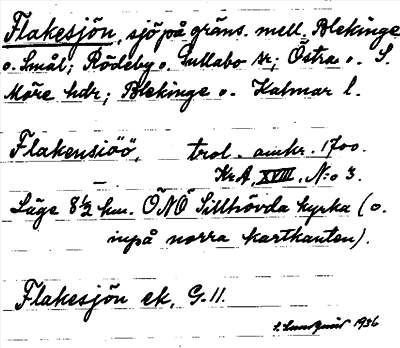 Flakesjön, sjö på gräns. mell. Blekinge
o. Smål; Rödeby o. Gullabo sr; Östra o. S.
Möre hdr; Blekinge o. Kalmar l.
Flakensiöö, trol. omkr. 1700.
KrA, XVIII, N:o 3.
Läge 8½ km. ÖNÖ Sillhövda kyrka (o.
inpå norra kartkanten).
Flakesjön ek, G.11.
S. Lundquist 1936